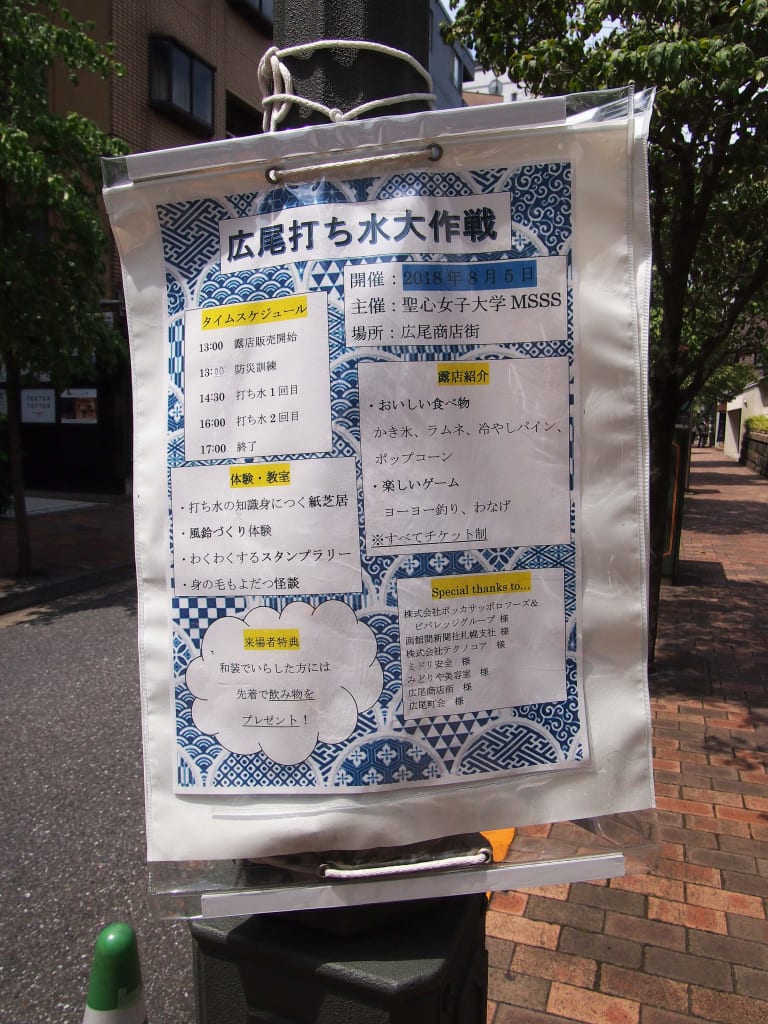 広尾打ち水大作戦
開催：2018年8月5日
主催：聖心女子大学MSSS
場所：広尾商店街
タイムスケジュール
13:00 露店販売開始
13:00 防災訓練
14:30 打ち水1回目
16:00 打ち水2回目
17:00 終了
露店紹介
・おいしい食べ物
かき氷、ラムネ、冷やしパイン、
ポップコーン
・楽しいゲーム
ヨーヨー釣り、わなげ
※すべてチケット制
体験・教室
・打ち水の知識身につく紙芝居
・風鈴づくり体験
・わくわくするスタンプラリー
・身の毛もよだつ怪談
Special thanks to...
株式会社ポッカサッポロフーズ&
ビバレッジグループ 様
函館間新聞社札幌支社 様
株式会社テクノコア 様
ミドリ安全 様
みどりや美容室 様
広尾商店街 様
広尾町会 様
来場者特典
和装でいらした方には
先着で飲み物を
プレゼント！
TEETER
TOTTER